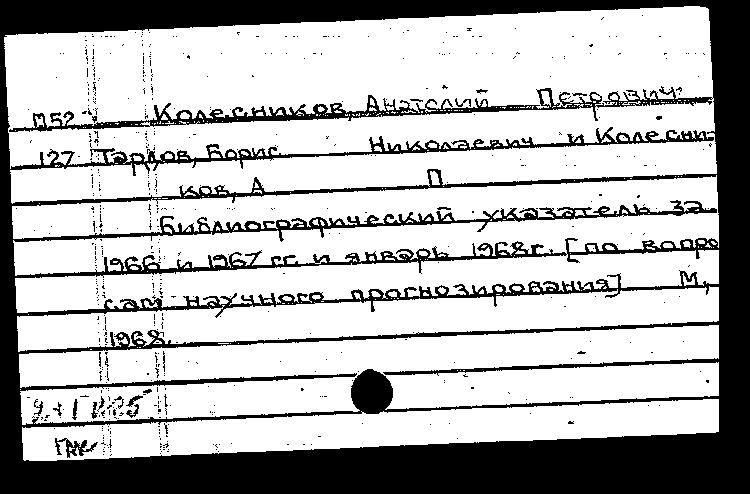 П52 Колесников, Анатолий Петрович
127 Тардов, Борис Николаевич и Колесни-
ков, А П
Библиографический указатель за
1966 и 1967 гг. и январь 1968г. [по вопро
сам научного прогнозирования] М,
1968.